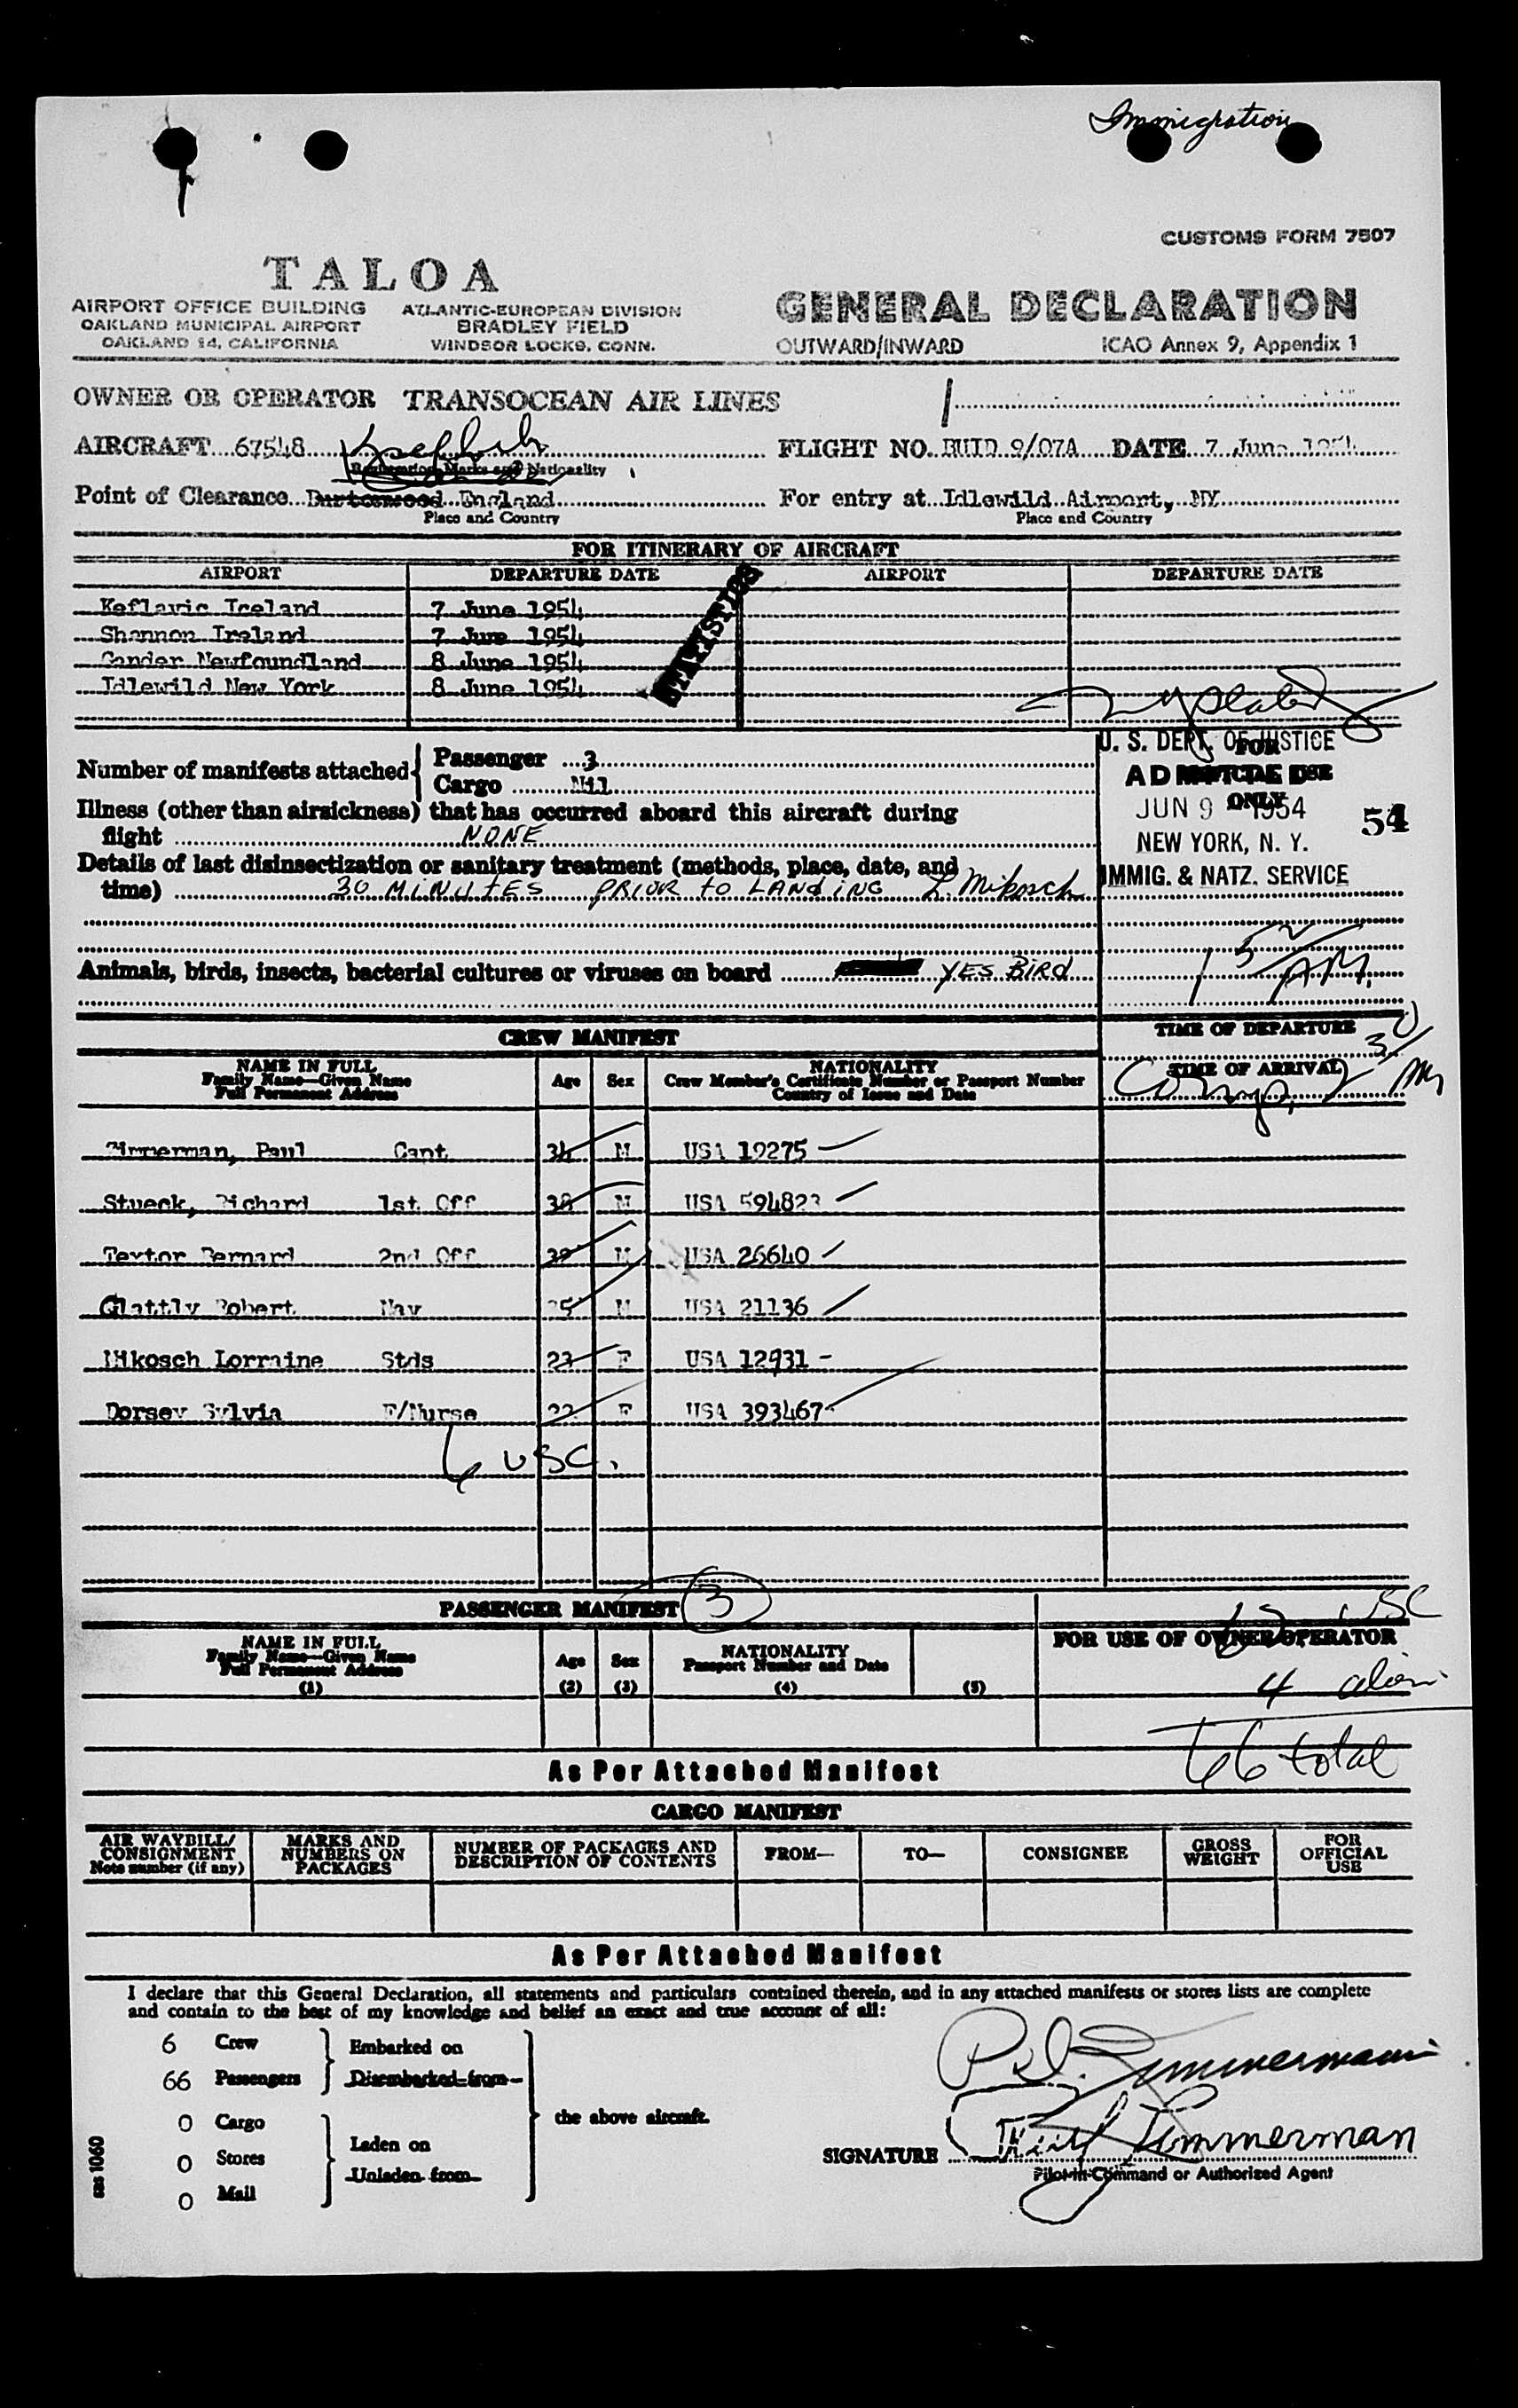 Immigration
CUSTOMS FORM 7507
TALOA
AIRPORT OFFICE BUILDING
OAKLAND MUNICIPAL AIRPORT
OAKLAND 14, CALIFORNIA
ATLANTIC-EUROPEAN DIVISION
BRADLEY FIELD
WINDSOR LOCKS, CONN.
GENERAL DECLARATION
OUTWARD/INWARD ICAO Annex 9, Appendix 1
OWNER OR OPERATOR TRANSOCEAN AIR LINES
AIRCRAFT 67548 FLIGHT NO. BUID 9/07A DATE 7 June 1954
Registration Marks and Nationality
Point of Clearance Burtonwood England For entry at Idlewild Airport, NY
Place and Country Place and Country
FOR ITINERARY OF AIRCRAFT
AIRPORT DEPARTURE DATE AIRPORT DEPARTURE DATE
Keflavic Iceland 7 June 1954
Shannon Ireland 7 June 1954
Gander Newfoundland 8 June 1954
Idlewild New York 8 June 1954
STATISTICS
Number of manifests attached
Passenger 3
Cargo Nil
U. S. DEPT. OF JUSTICE
FOR
ADMITTED
OFFICIAL USE
ONLY
JUN 9 1954
54
NEW YORK, N. Y.
IMMIG. & NATZ. SERVICE
Illness (other than airsickness) that has occurred aboard this aircraft during
flight NONE
Details of last disinsectization or sanitary treatment (methods, place, date, and
time) 30 MINUTES PRIOR TO LANDING L. Mikosch
Animals, birds, insects, bacterial cultures or viruses on board YES BIRD
TIME OF DEPARTURE
TIME OF ARRIVAL
CREW MANIFEST
NAME IN FULL
Family Name—Given Name
Full Permanent Address
Age Sex
NATIONALITY
Crew Member's Certificate Number or Passport Number
Country of Issue and Date
Zimmerman, Paul Capt 34 M USA 19275
Stueck, Richard 1st Off 38 M USA 594823
Textor Bernard 2nd Off M USA 26640
Glattly Robert Nav M USA 21136
Mikosch Lorraine Stds 23 F USA 12931
Dorsey Sylvia F/Nurse 22 F USA 393467
6 USC.
PASSENGER MANIFEST 3
NAME IN FULL
Family Name—Given Name
Full Permanent Address
(1)
Age
(2)
Sex
(3)
NATIONALITY
Passport Number and Date
(4)
(5)
USC
FOR USE OF OWNER/OPERATOR
4 alien
66 total
As Per Attached Manifest
CARGO MANIFEST
AIR WAYBILL/
CONSIGNMENT
Note number (if any)
MARKS AND
NUMBERS ON
PACKAGES
NUMBER OF PACKAGES AND
DESCRIPTION OF CONTENTS
FROM—
TO—
CONSIGNEE
GROSS
WEIGHT
FOR
OFFICIAL
USE
As Per Attached Manifest
I declare that this General Declaration, all statements and particulars contained therein, and in any attached manifests or stores lists are complete
and contain to the best of my knowledge and belief an exact and true account of all:
6 Crew
66 Passengers
Embarked on
Disembarked from
0 Cargo
0 Stores
0 Mail
Laden on
Unladen from
the above aircraft.
P. Zimmerman
SIGNATURE Paul Zimmerman
Pilot-in-Command or Authorized Agent
sas 1060